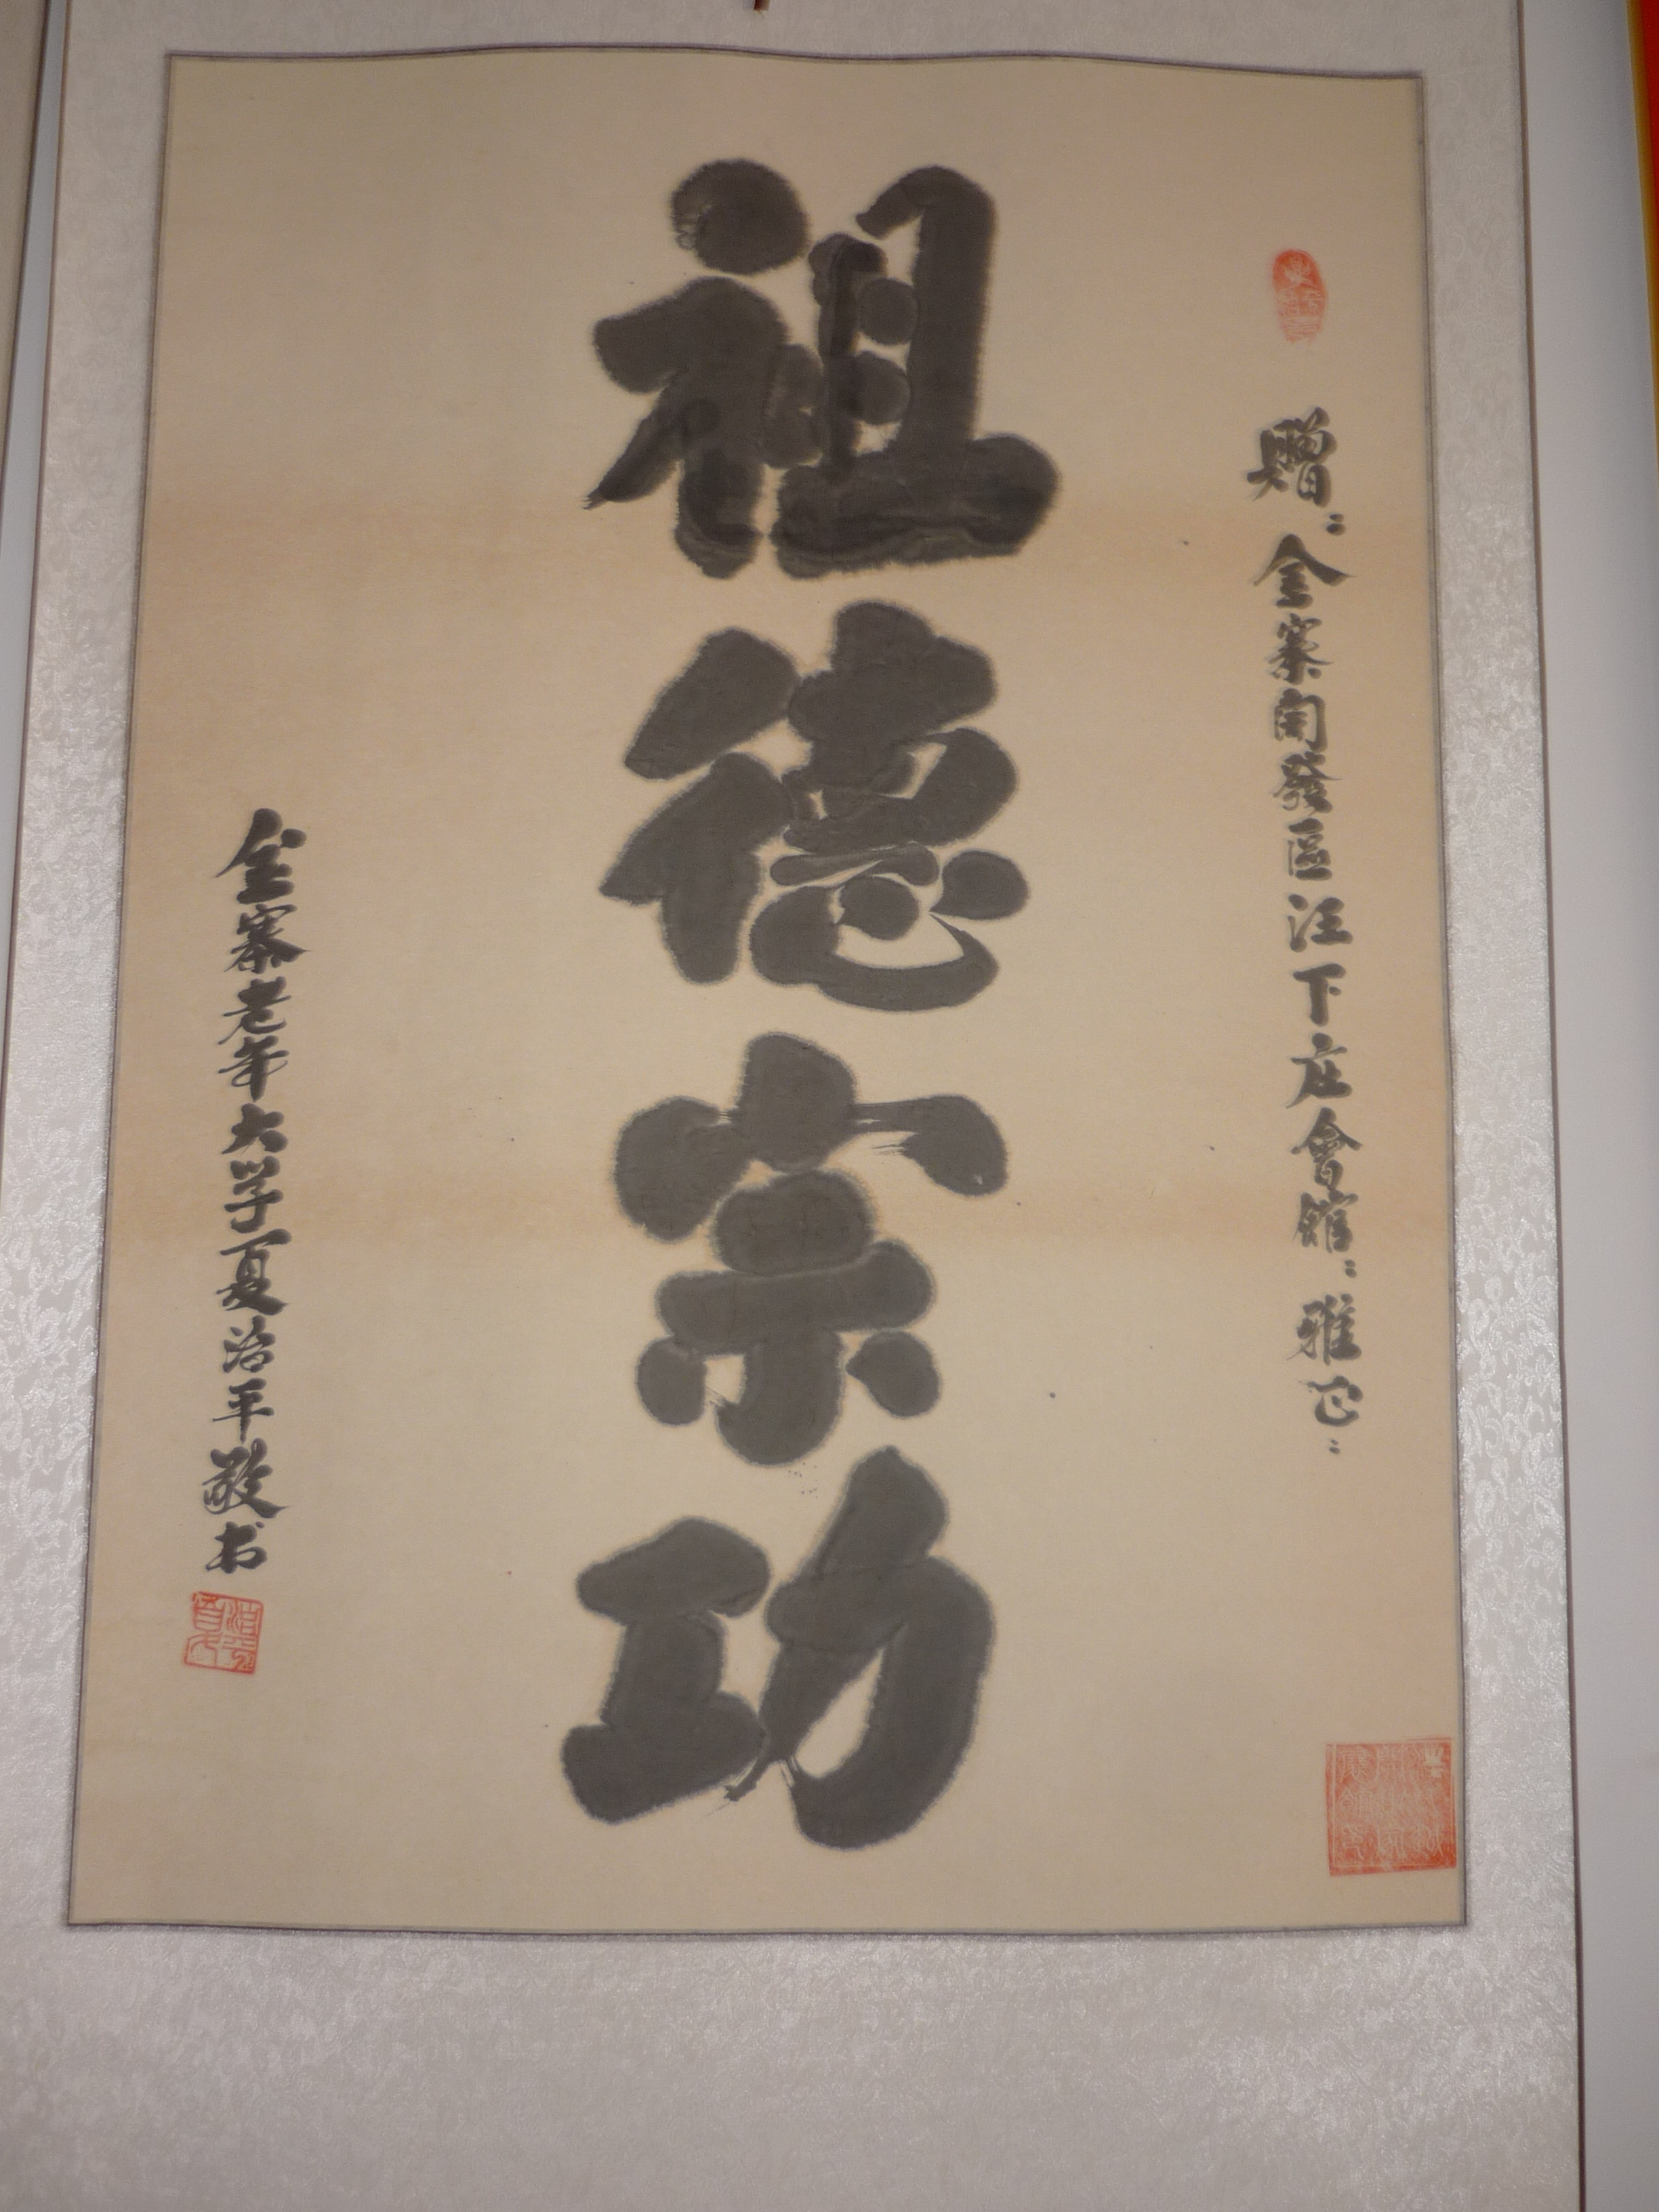 贈：金寨開發區汪下庄會館：雅正：
祖德宗功
金寨老年大学夏治平敬书